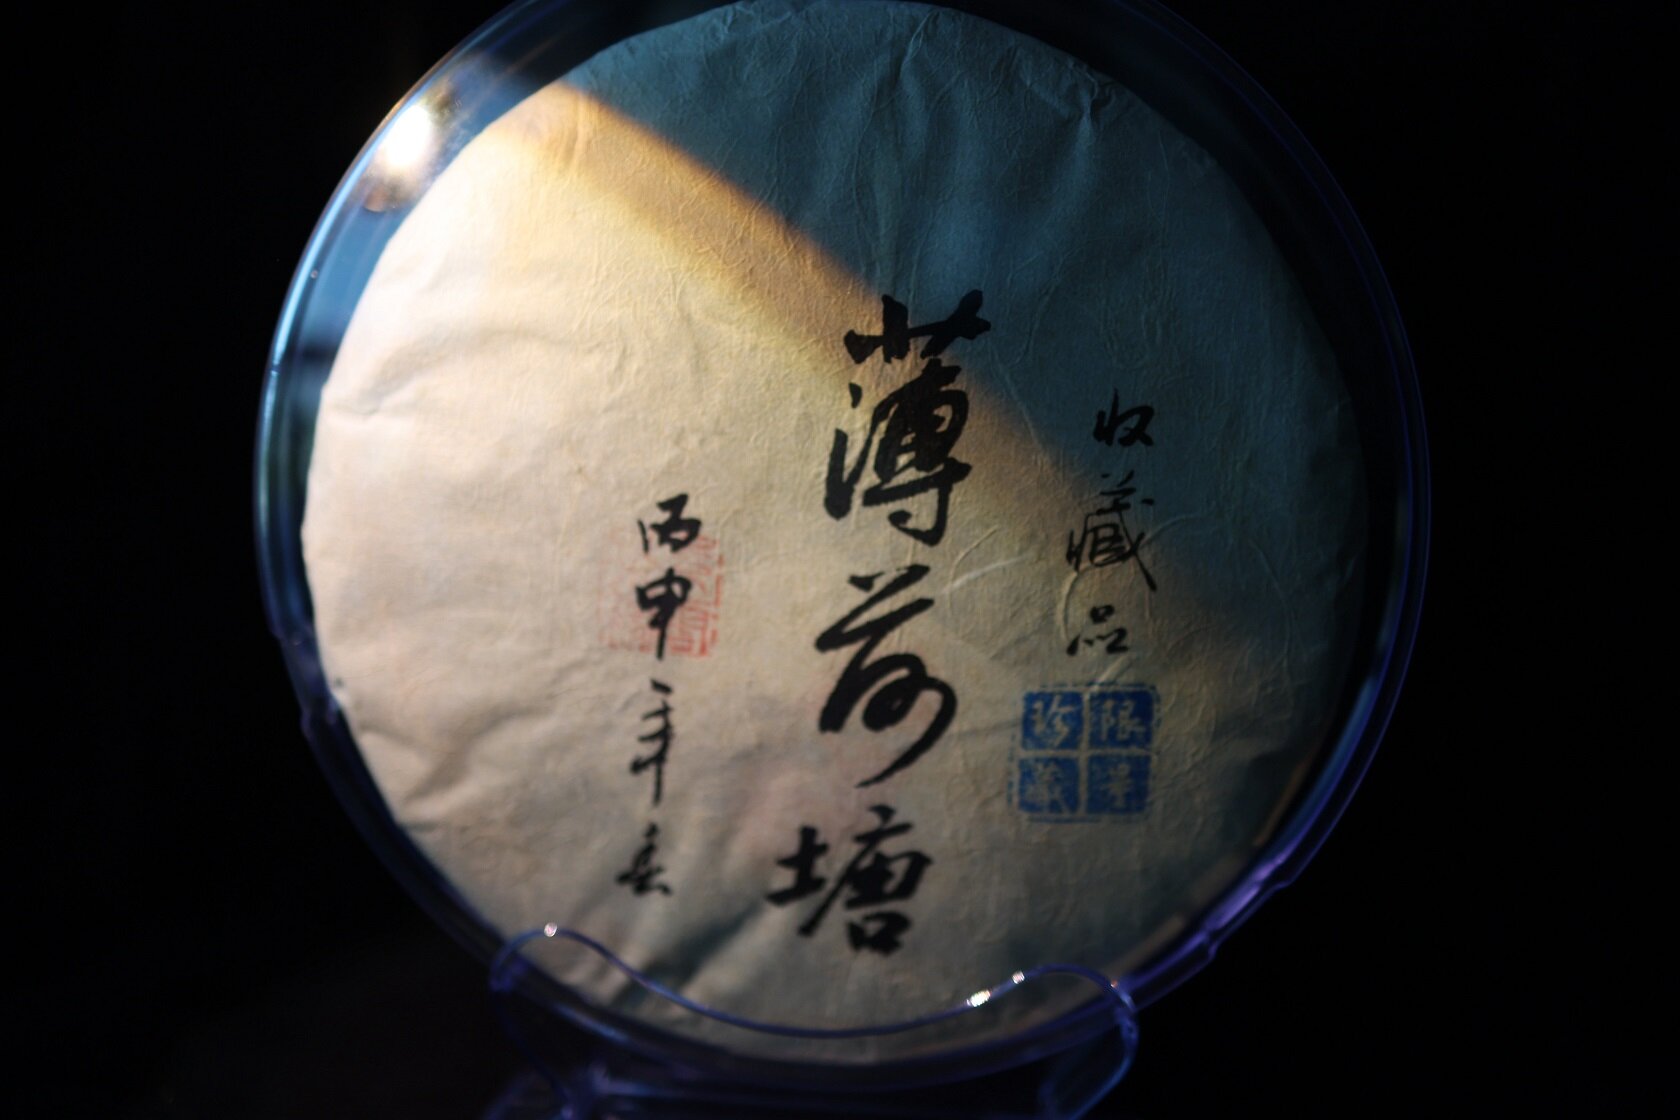 收藏品
限量
珍藏
薄荷塘
丙申年春